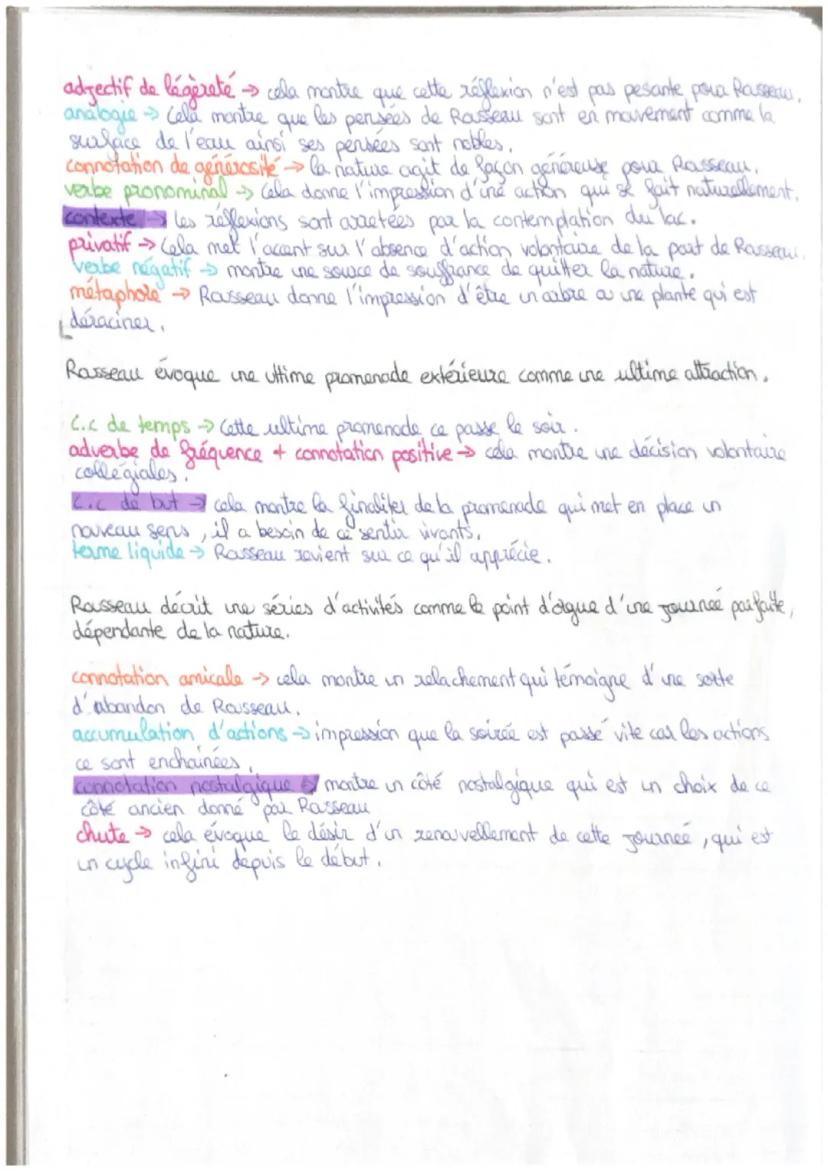 adjectif de légèreté → cela montre que cette réflexion n'est pas pesante pour Rousseau.
analogie → cela montre que les pensées de Rousseau sont en mouvement comme la
surface de l'eau ainsi ses pensées sont nobles.
connotation de générosité → la nature agit de façon généreuse pour Rousseau.
verbe pronominal → cela donne l'impression d'une action qui se fait naturellement.
contexte → les réflexions sont arretées par la contemplation du lac.
privatif → cela met l'accent sur l'absence d'action volontaire de la part de Rousseau.
verbe négatif → montre une source de souffrance de quitter la nature.
métaphore → Rousseau donne l'impression d'être un arbre ou une plante qui est
déraciner.
Rousseau évoque une ultime promenade extérieure comme une ultime attraction.
C.C de temps → Cette ultime promenade ce passe le soir.
adverbe de fréquence + connotation positive → cela montre une décision volontaire
collégiales.
C.C de but → cela montre la finaliter de la promenade qui met en place un
nouveau sens, il a besoin de ce sentir vivants.
terme liquide → Rousseau revient sur ce qu'il apprécie.
Rousseau décrit une séries d'activités comme le point d'orgue d'une journeé parfaite,
dépendante de la nature.
connotation amicale → cela montre un relachement qui témoigne d'une sorte
d'abandon de Rousseau.
accumulation d'actions → impression que la soirée est passé vite car les actions
ce sont enchainées.
connotation nostalgique → montre un côté nostalgique qui est un choix de ce
côté ancien donné par Rousseau
chute → cela évoque le désir d'un renouvellement de cette journeé, qui est
un cycle infini depuis le début.